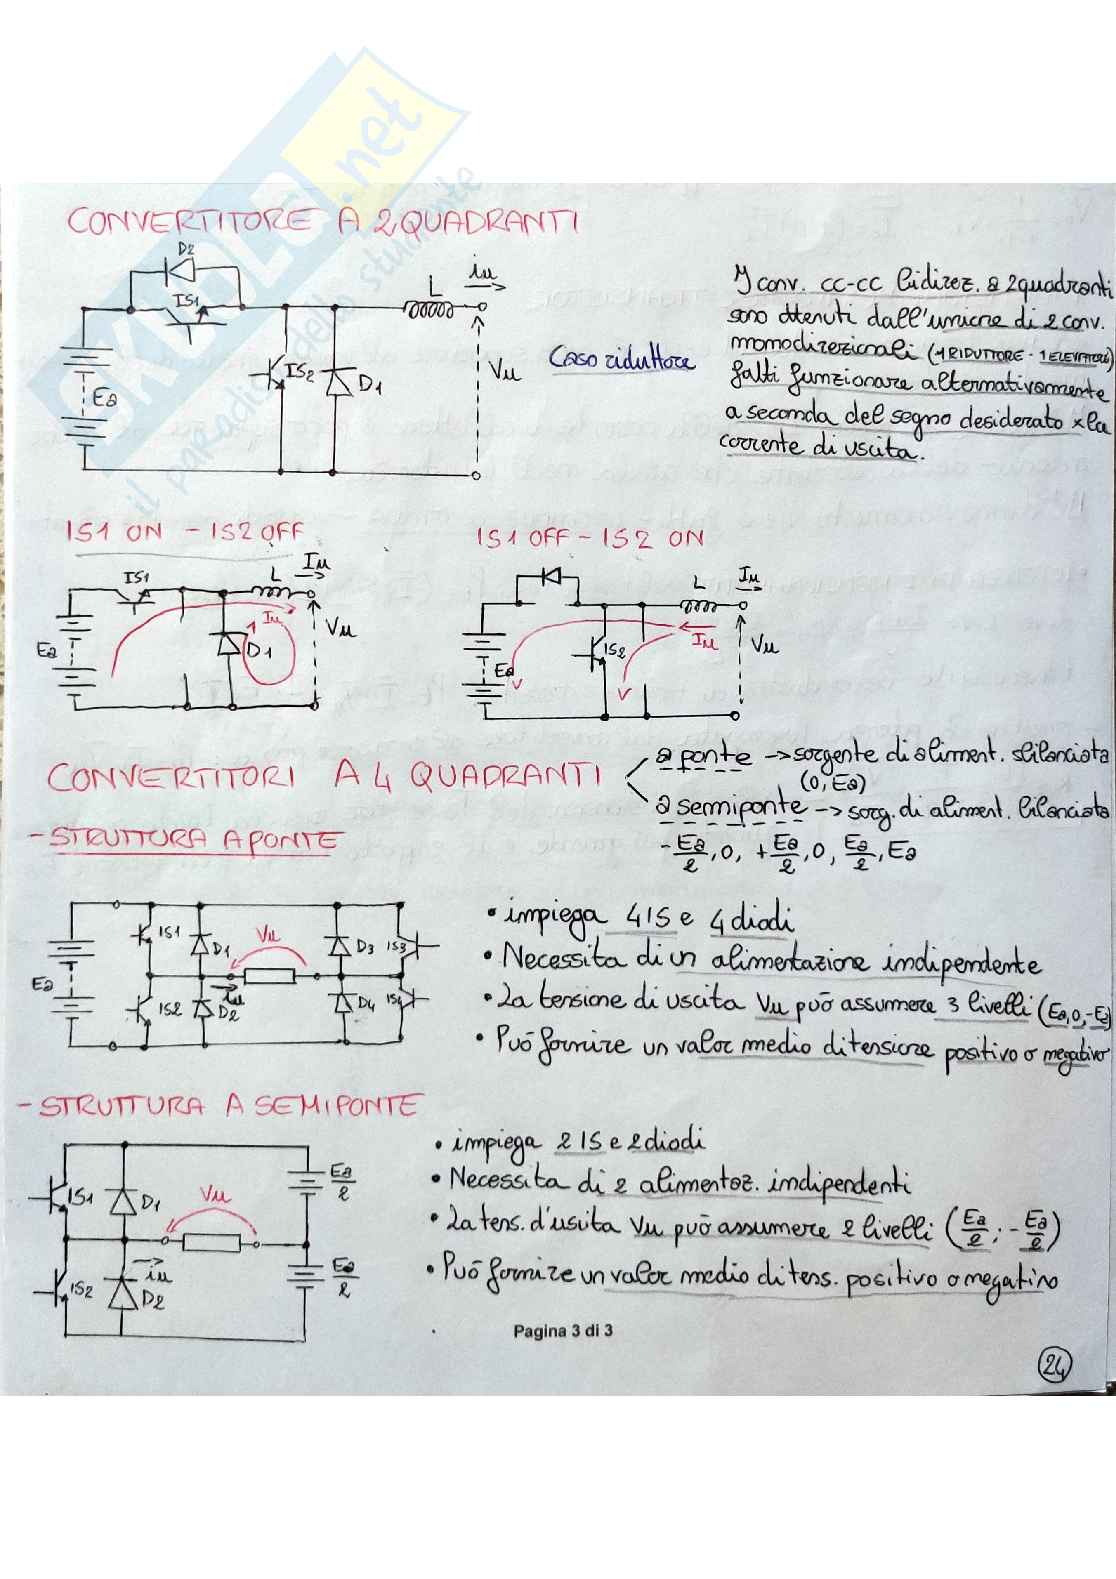 SKUOLA.net
il paradiso dello studente
CONVERTITORE A 2 QUADRANTI
D2
IS1
L
iu
IS2
D1
Vu
Ea
Caso riduttore
I conv. cc-cc bidirez. a 2 quadranti
sono ottenuti dall'unione di 2 conv.
monodirezionali (1 RIDUTTORE - 1 ELEVATORE)
fatti funzionare alternativamente
a seconda del segno desiderato x la
corrente di uscita.
IS1 ON - IS2 OFF
IS1 OFF - IS2 ON
IS1
L
Iu
Iu
Ea
D1
Vu
L
Iu
Iu
Ea
IS2
Vu
CONVERTITORI A 4 QUADRANTI
a ponte → sorgente di aliment. sbilanciata
(0, Ea)
a semiponte → sorg. di aliment. bilanciata
- Ea/2, 0, + Ea/2, 0, Ea/2, Ea
- STRUTTURA A PONTE
Ea
IS1
D1
Vu
D3
IS3
IS2
D2
iu
D4
IS4
• impiega 4 IS e 4 diodi
• Necessita di un alimentazione indipendente
• La tensione di uscita Vu può assumere 3 livelli (Ea, 0, -Ea)
• Può fornire un valor medio di tensione positivo o negativo
- STRUTTURA A SEMIPONTE
IS1
D1
Vu
Ea/2
IS2
D2
iu
Ea/2
• impiega 2 IS e 2 diodi
• Necessita di 2 alimentaz. indipendenti
• La tens. d'usita Vu può assumere 2 livelli (Ea/2 ; - Ea/2)
• Può fornire un valor medio di tens. positivo o negativo
Pagina 3 di 3
24